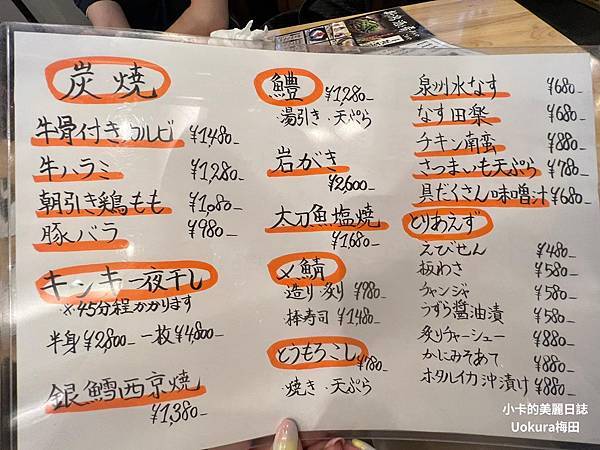 炭焼
牛骨付きカルビ ¥1,480-
牛ハラミ ¥1,280-
朝引き鶏もも ¥1,080-
豚バラ ¥980-
キンキ一夜干し
※45分程かかります
半身¥2,800- 一枚¥4,800-
銀鱈西京焼
¥1,380-
鱧 ¥1,280-
・湯引き・天ぷら
岩がき
¥2,600-
太刀魚塩焼
¥1,680-
〆鯖
・造り・炙り ¥980-
・棒寿司 ¥1,480-
とうもろこし ¥780-
・焼き・天ぷら
泉州水なす ¥680-
なす田楽 ¥680-
チキン南蛮 ¥880-
さつまいも天ぷら ¥780-
具だくさん味噌汁 ¥680-
とりあえず
えびせん ¥480-
板わさ ¥580-
チャンジャ ¥580-
うずら醤油漬 ¥580-
炙りチャーシュー ¥880-
かにみそあて ¥880-
ホタルイカ沖漬け ¥880-
小卡的美麗日誌
Uokura梅田